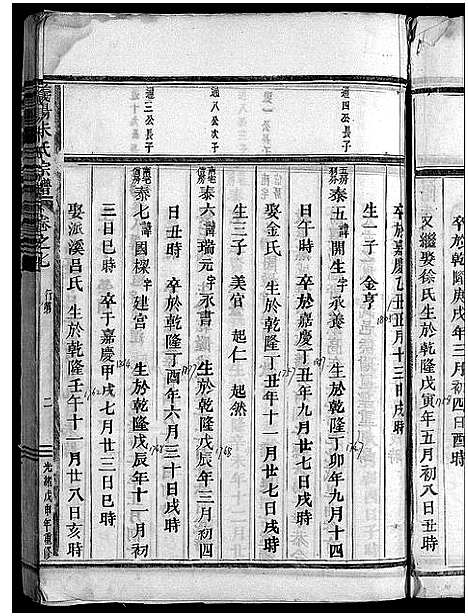 卒於乾隆庚戌年三月初四日酉時
又繼娶徐氏 生於乾隆戊寅年五月初八日丑時
卒於嘉慶乙丑年五月十三日戌時
生一子 金亨
週四公長子
泰五 諱開生 字承養 生於乾隆丁卯年九月十四
日午時 卒於嘉慶丁丑年九月廿七日戌時
娶金氏 生於乾隆丁丑年十一月廿七日戌時
生三子 美官 起仁 起然
週八公次子
泰六 諱瑞元 字承書 生於乾隆戊辰年三月初四
日丑時 卒於乾隆丁酉年六月三十日戌時
週三公長子
泰七 諱國樑 字建宮 生於乾隆戊辰年十一月初
三日巳時 卒于嘉慶甲戌七月廿三日巳時
娶派溪呂氏 生於乾隆壬午十一月廿八日亥時
義陽朱氏宗譜 卷之七 行第 二 光緒戊申年重修